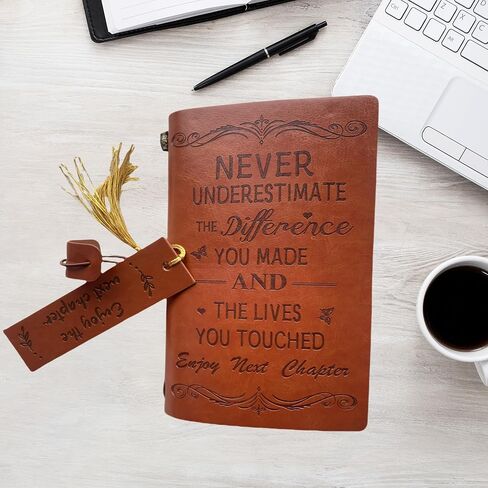 NEVER
UNDERESTIMATE
THE Difference
YOU MADE
AND
THE LIVES
YOU TOUCHED
Enjoy Next Chapter
Enjoy the
next chapter